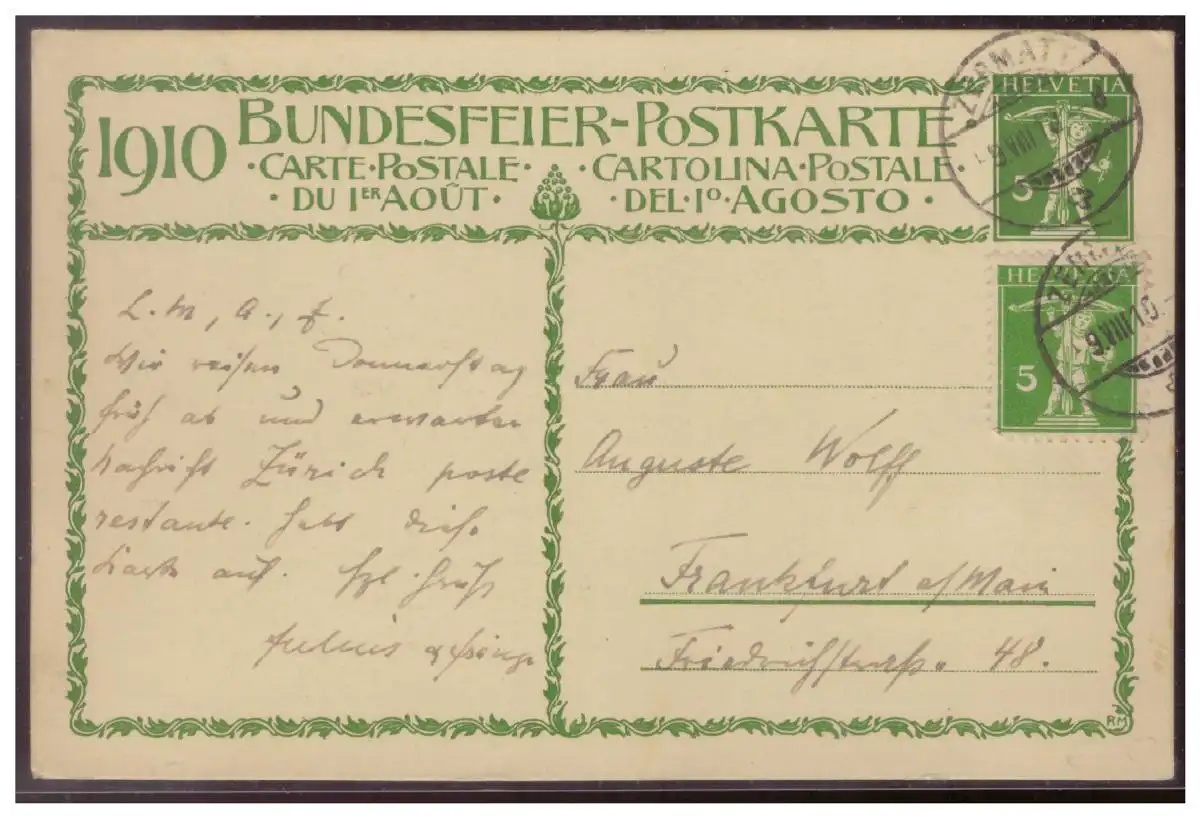 1910 BUNDESFEIER-POSTKARTE
·CARTE·POSTALE· ·CARTOLINA·POSTALE·
·DU 1ER AOÛT· ·DEL·1º·AGOSTO·
HELVETIA
5
ZERMATT
9.VIII.10
HELVETIA
5
9.VIII.10
L. M., A., F.
Wir reisen Donnerstag
früh ab und erwarten
Nachricht Zürich poste
restante. Hebt diese
Karte auf. Hzl. Grüße
Julius
Frau
Auguste Wolff
Frankfurt a/Main
Friedrichstrasse 48.
RM